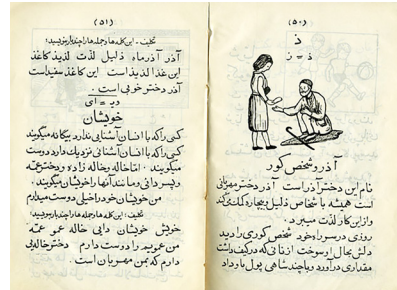 (۵۰)
ذ
ذ = ز
آذر و شخص کور
نام این دختر آذر است آذر دختر مهربانی
است همیشه با شخاص ذلیل و بیچاره کمک میکند
و از این کار لذت میبرد.
روزی در سر راه خود شخص کوری را دید
دلش بحال او سوخت از نانی که در کیف داشت
مقداری در آورد و با چند شاهی پول باو داد
(۵۱)
تکلیف: این کلمه ها و جمله ها را چند بار بنویسید:
آذر آذر ماه ذلیل لذت لذیذ کاغذ
این غذا لذیذ است این کاغذ سفید است
آذر دختر خوبی است.
خویشان
کسی را که با انسان آشنائی ندارد بیگانه میگویند
کسی را که با انسان آشنائی نزدیک دارد دوست
میگویند. اما خاله و خاله زاده و دختر عمه
و پسر دائی و مانند آنها را خویشان میگویند.
من خویشان خود را خیلی دوست میدارم
تکلیف: این کلمه ها و جمله ها را چند بار بنویسید:
خویش خویشان دایی خاله عمو عمه
من عمویم را دوست دارم دختر خاله یی
دارم که بمن مهربان است.